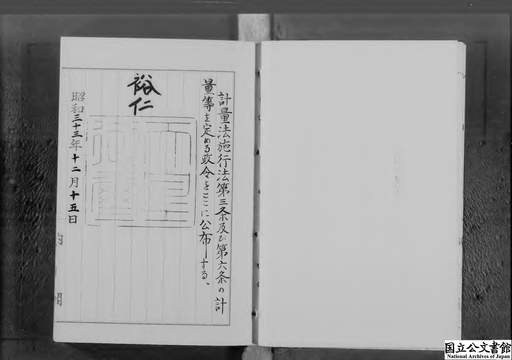 計量法施行法第三条及び第六条の計
量等を定める政令をここに公布する。
裕仁
昭和三十三年十二月十五日
内閣
国立公文書館
National Archives of Japan